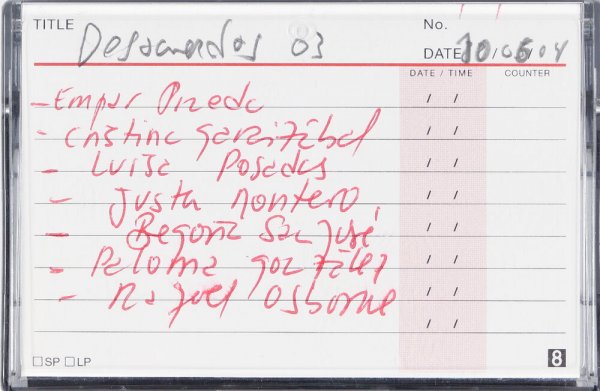 TITLE Desacuerdos 03 No.
DATE 10/06/04
DATE / TIME COUNTER
- Empar Pineda / /
- Cristina Garaizábal / /
- Luisa Posadas / /
- Justa Montero, / /
- Begoña San José / /
- Paloma González / /
- Raquel Osborne / /
/ /
SP LP 8